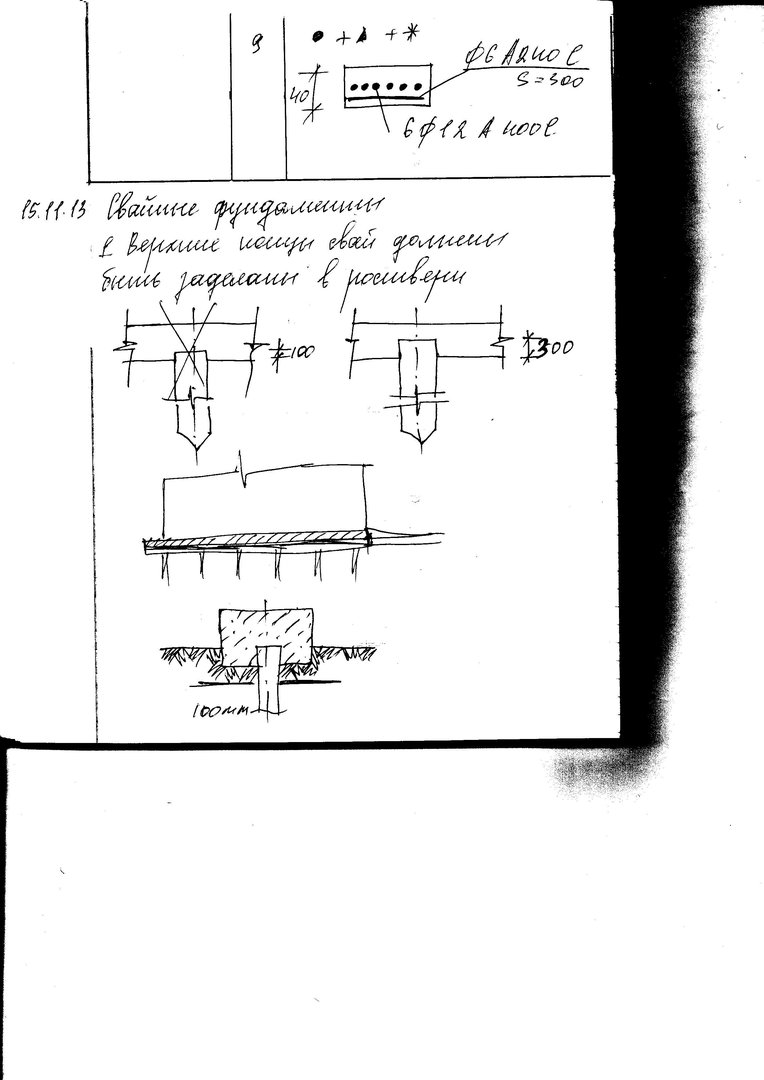 9
• + ▲ + *
ф6 А240 С
S=300
40
6 ф12 А400С.
15.11.13 Свайные фундаменты
1 Верхние концы свай должны
быть заделаны в ростверк
100
300
100мм